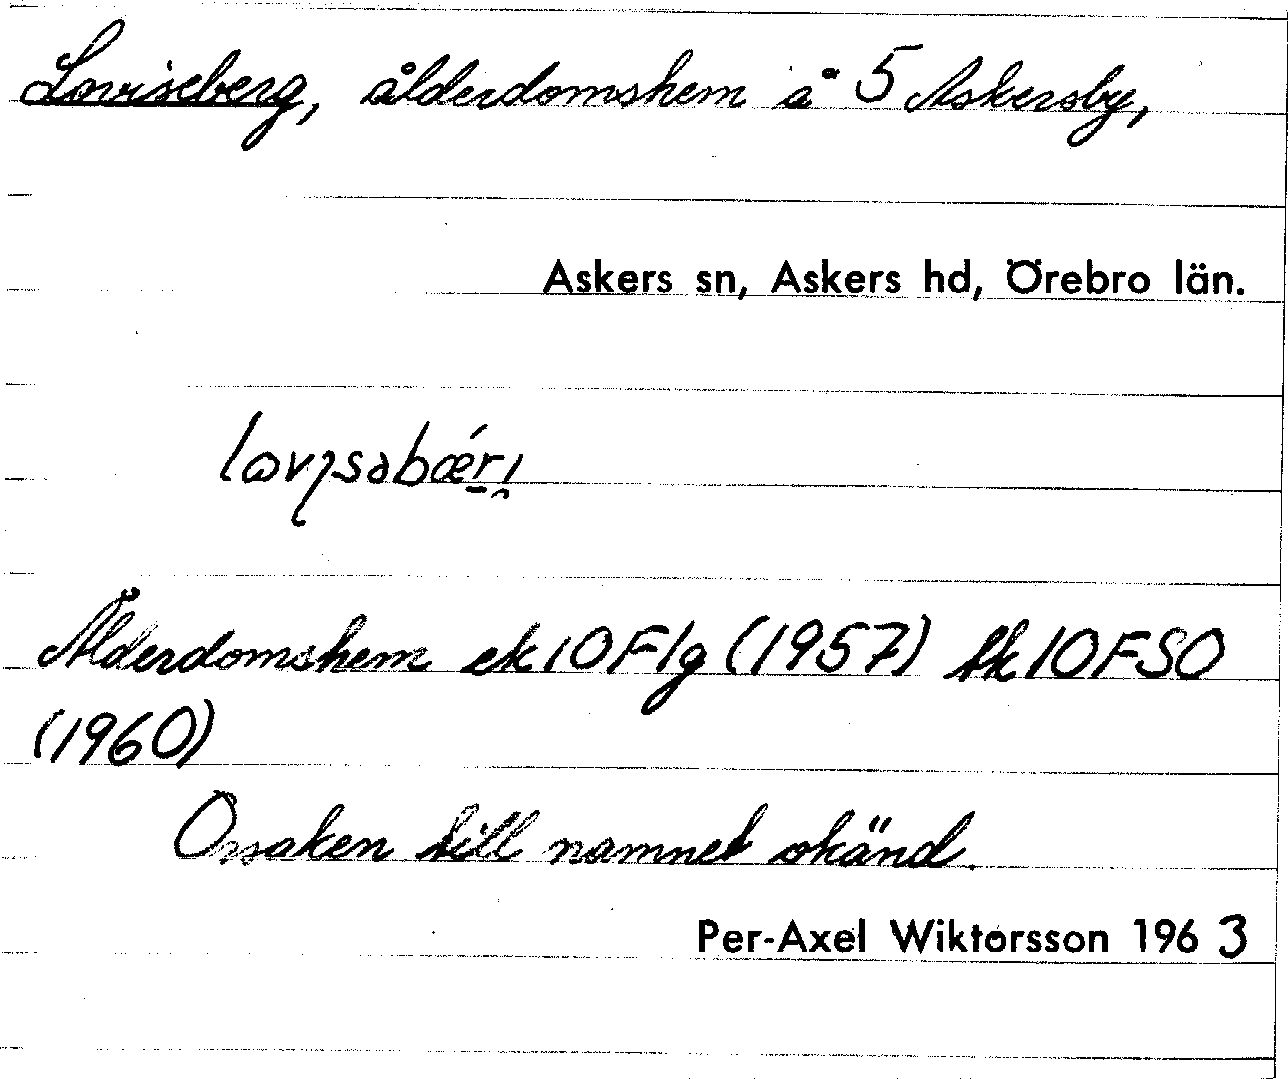 Loviseberg, ålderdomshem å 5 Askersby,
Askers sn, Askers hd, Örebro län.
Ålderdomshem ek 10F1g (1957) fk 10FSO
(1960)
Orsaken till namnet okänd.
Per-Axel Wiktorsson 1963